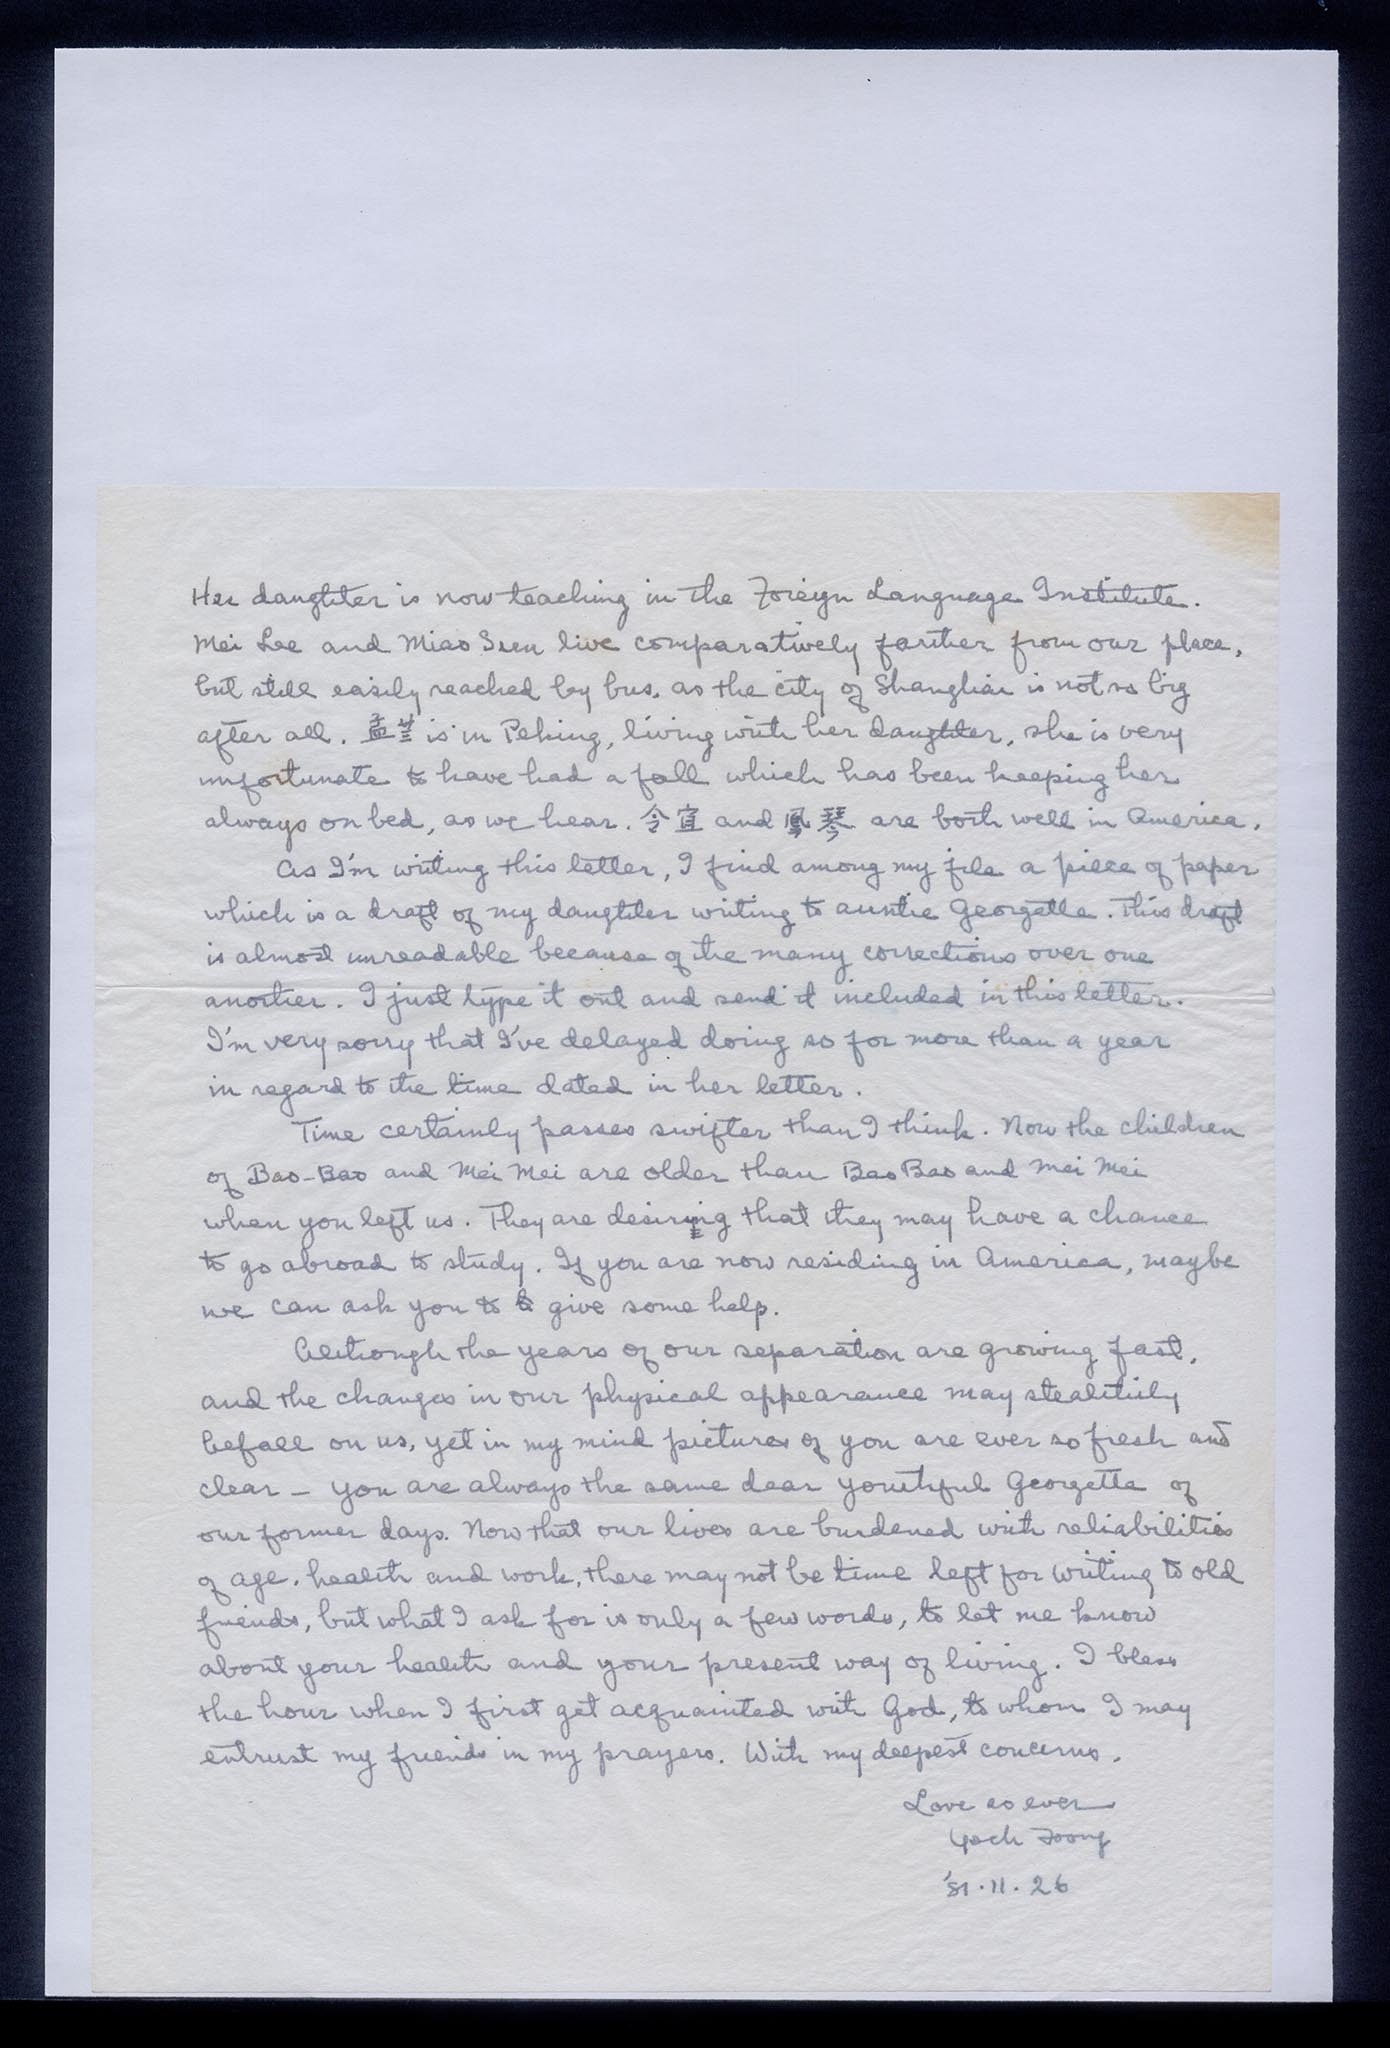 Her daughter is now teaching in the Foreign Language Institute.
Mei Lee and Miao Suen live comparatively farther from our place,
but still easily reached by bus, as the city of Shanghai is not so big
after all. 孟芝 is in Peking, living with her daughter, she is very
unfortunate to have had a fall which has been keeping her
always on bed, as we hear. 令宜 and 鳳琴 are both well in America.
As I'm writing this letter, I find among my file a piece of paper
which is a draft of my daughter writing to auntie Georgette. This draft
is almost unreadable because of the many corrections over one
another. I just type it out and send it included in this letter.
I'm very sorry that I've delayed doing so for more than a year
in regard to the time dated in her letter.
Time certainly passes swifter than I think. Now the children
of Bao-Bao and Mei Mei are older than Bao Bao and Mei Mei
when you left us. They are desiring that they may have a chance
to go abroad to study. If you are now residing in America, maybe
we can ask you to give some help.
Although the years of our separation are growing fast,
and the changes in our physical appearance may stealthily
befall on us, yet in my mind pictures of you are ever so fresh and
clear – you are always the same dear youthful Georgette of
our former days. Now that our lives are burdened with reliabilities
of age, health and work, there may not be time left for writing to old
friends, but what I ask for is only a few words, to let me know
about your health and your present way of living. I bless
the hour when I first get acquainted with God, to whom I may
entrust my friends in my prayers. With my deepest concerns.
Love as ever
Foong
'81.11.26